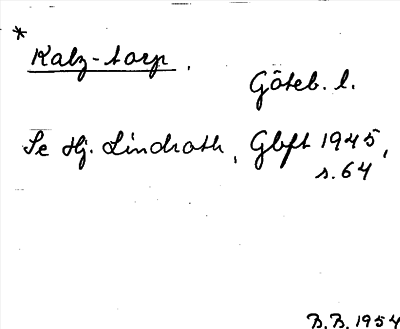 *
Kalz-torp.
Göteb. l.
Se Hj. Lindroth, Gbft 1945,
s. 64
B.B. 1954